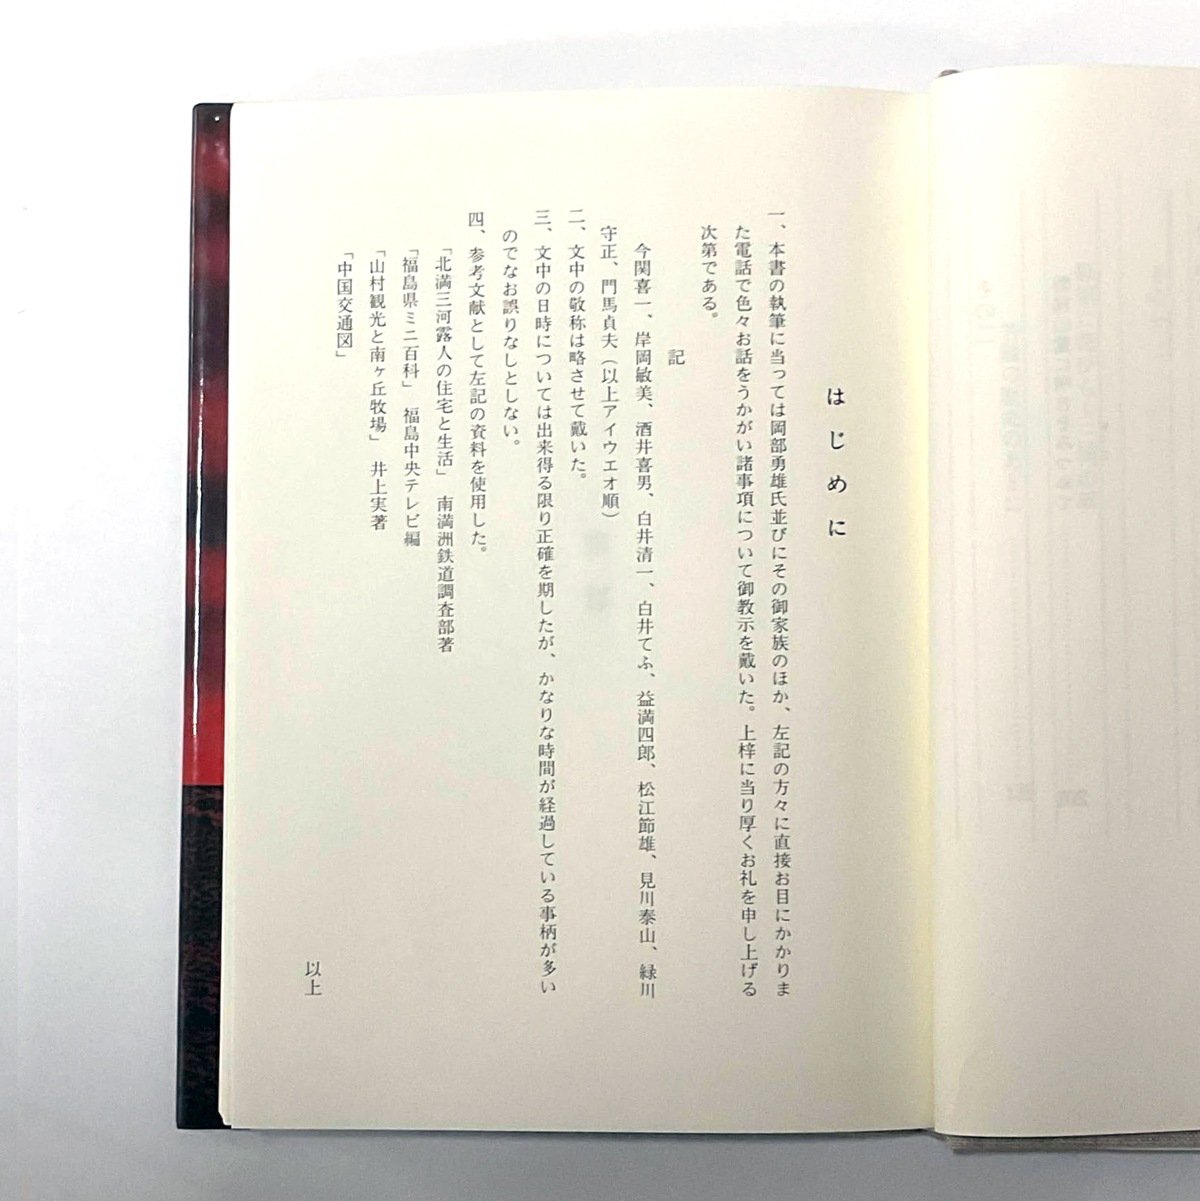 はじめに
一、本書の執筆に当っては岡部勇雄氏並びにその御家族のほか、左記の方々に直接お目にかかりま
た電話で色々お話をうかがい諸事項について御教示を戴いた。上梓に当り厚くお礼を申し上げる
次第である。
記
今関喜一、岸岡敏美、酒井喜男、白井清一、白井てふ、益満四郎、松江節雄、見川泰山、緑川
守正、門馬貞夫（以上アイウエオ順）
二、文中の敬称は略させて戴いた。
三、文中の日時については出来得る限り正確を期したが、かなりな時間が経過している事柄が多い
のでなお誤りなしとしない。
四、参考文献として左記の資料を使用した。
「北満三河露人の住宅と生活」　南満洲鉄道調査部著
「福島県ミニ百科」　福島中央テレビ編
「山村観光と南ヶ丘牧場」　井上実著
「中国交通図」
以上